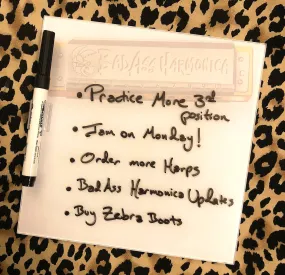 BadAss Harmonica
• Practice More 3rd
position
• Jam on Monday!
• Order more Harps
• BadAss Harmonica Updates
• Buy Zebra Boots